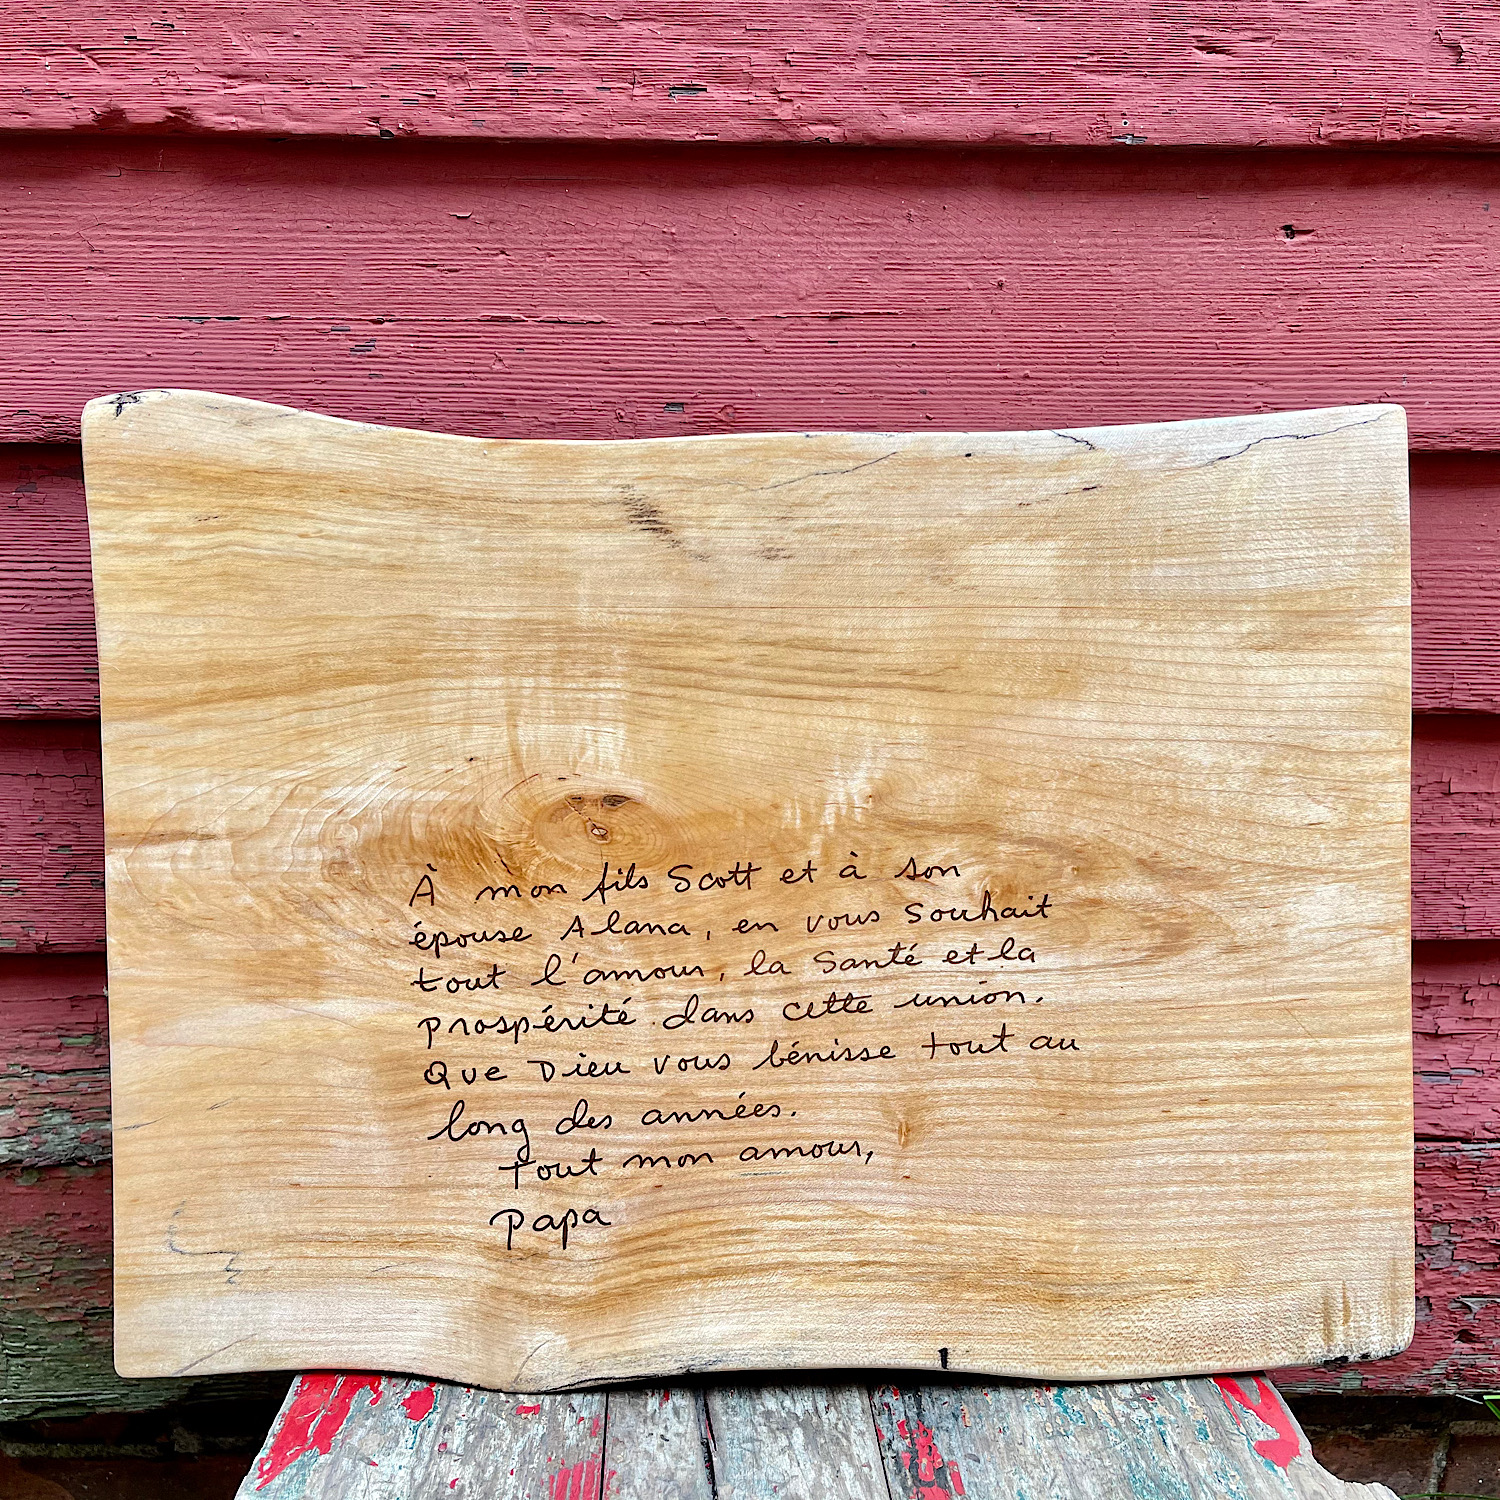 À mon fils Scott et à son
épouse Alana, en vous souhait
tout l'amour, la santé et la
prospérité dans cette union.
Que Dieu vous bénisse tout au
long des années.
Tout mon amour,
Papa